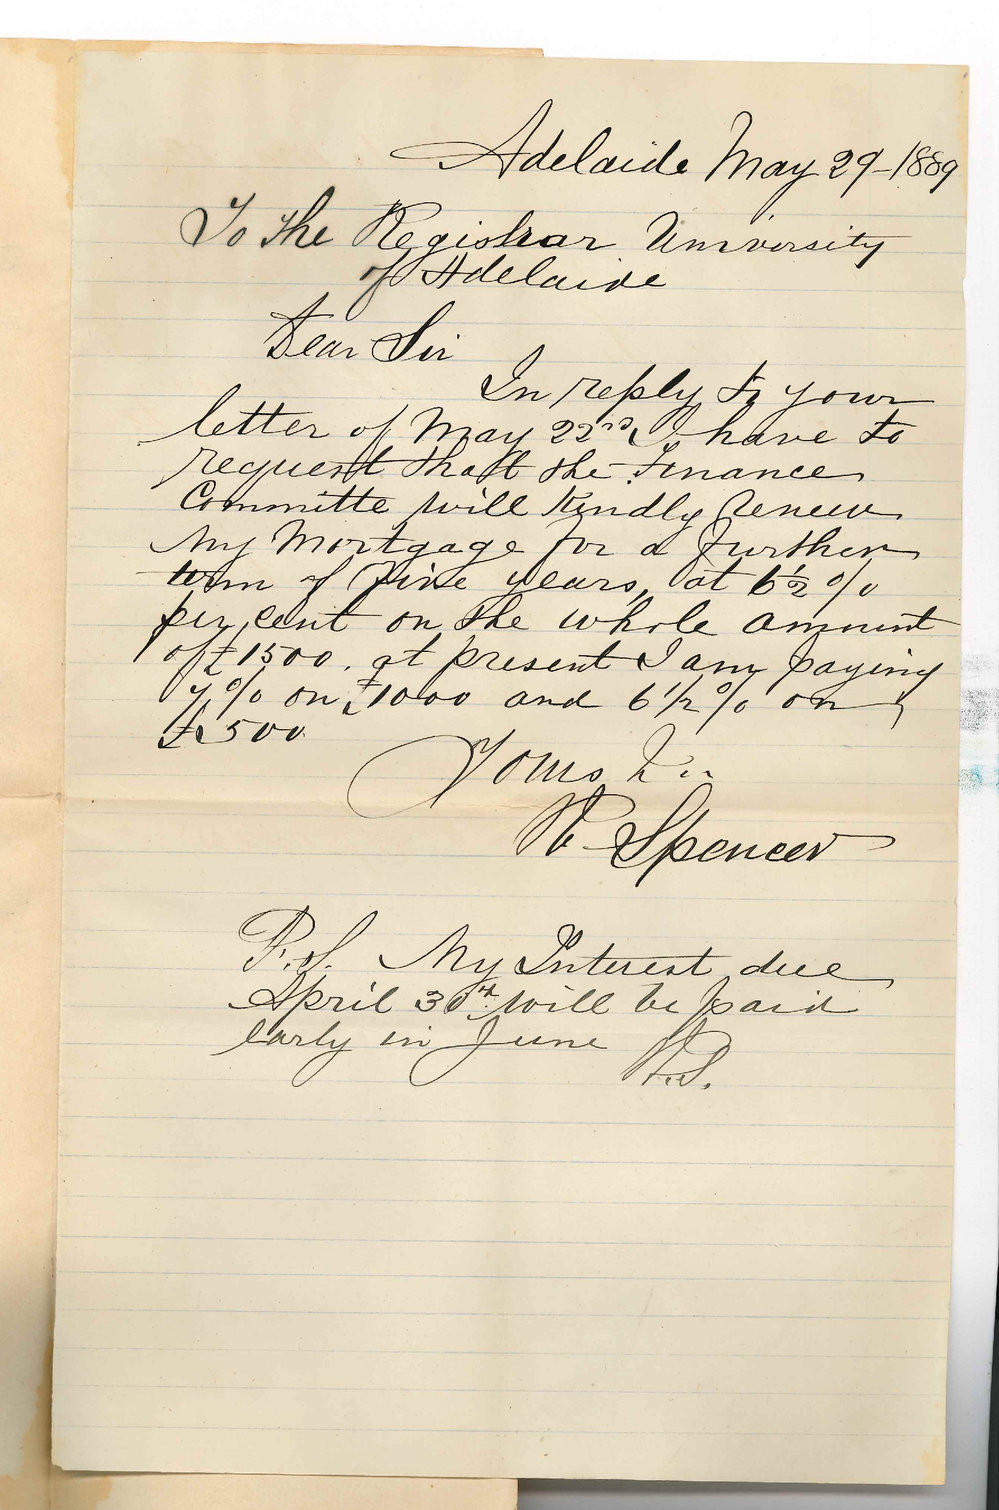 Adelaide May 29-1889
To the Registrar University
of Adelaide
Dear Sir
In reply to your
letter of May 22nd I have to
request that the Finance
Committe will Kindly Renew
My Mortgage for a further
term of five years, at 6½ %
per cent on the whole amount
of £1500. at present I am paying
7% on £1000 and 6½% on
£500.
Yours
Spencer
P.S. My Interest due
April 30th will be paid
early in June